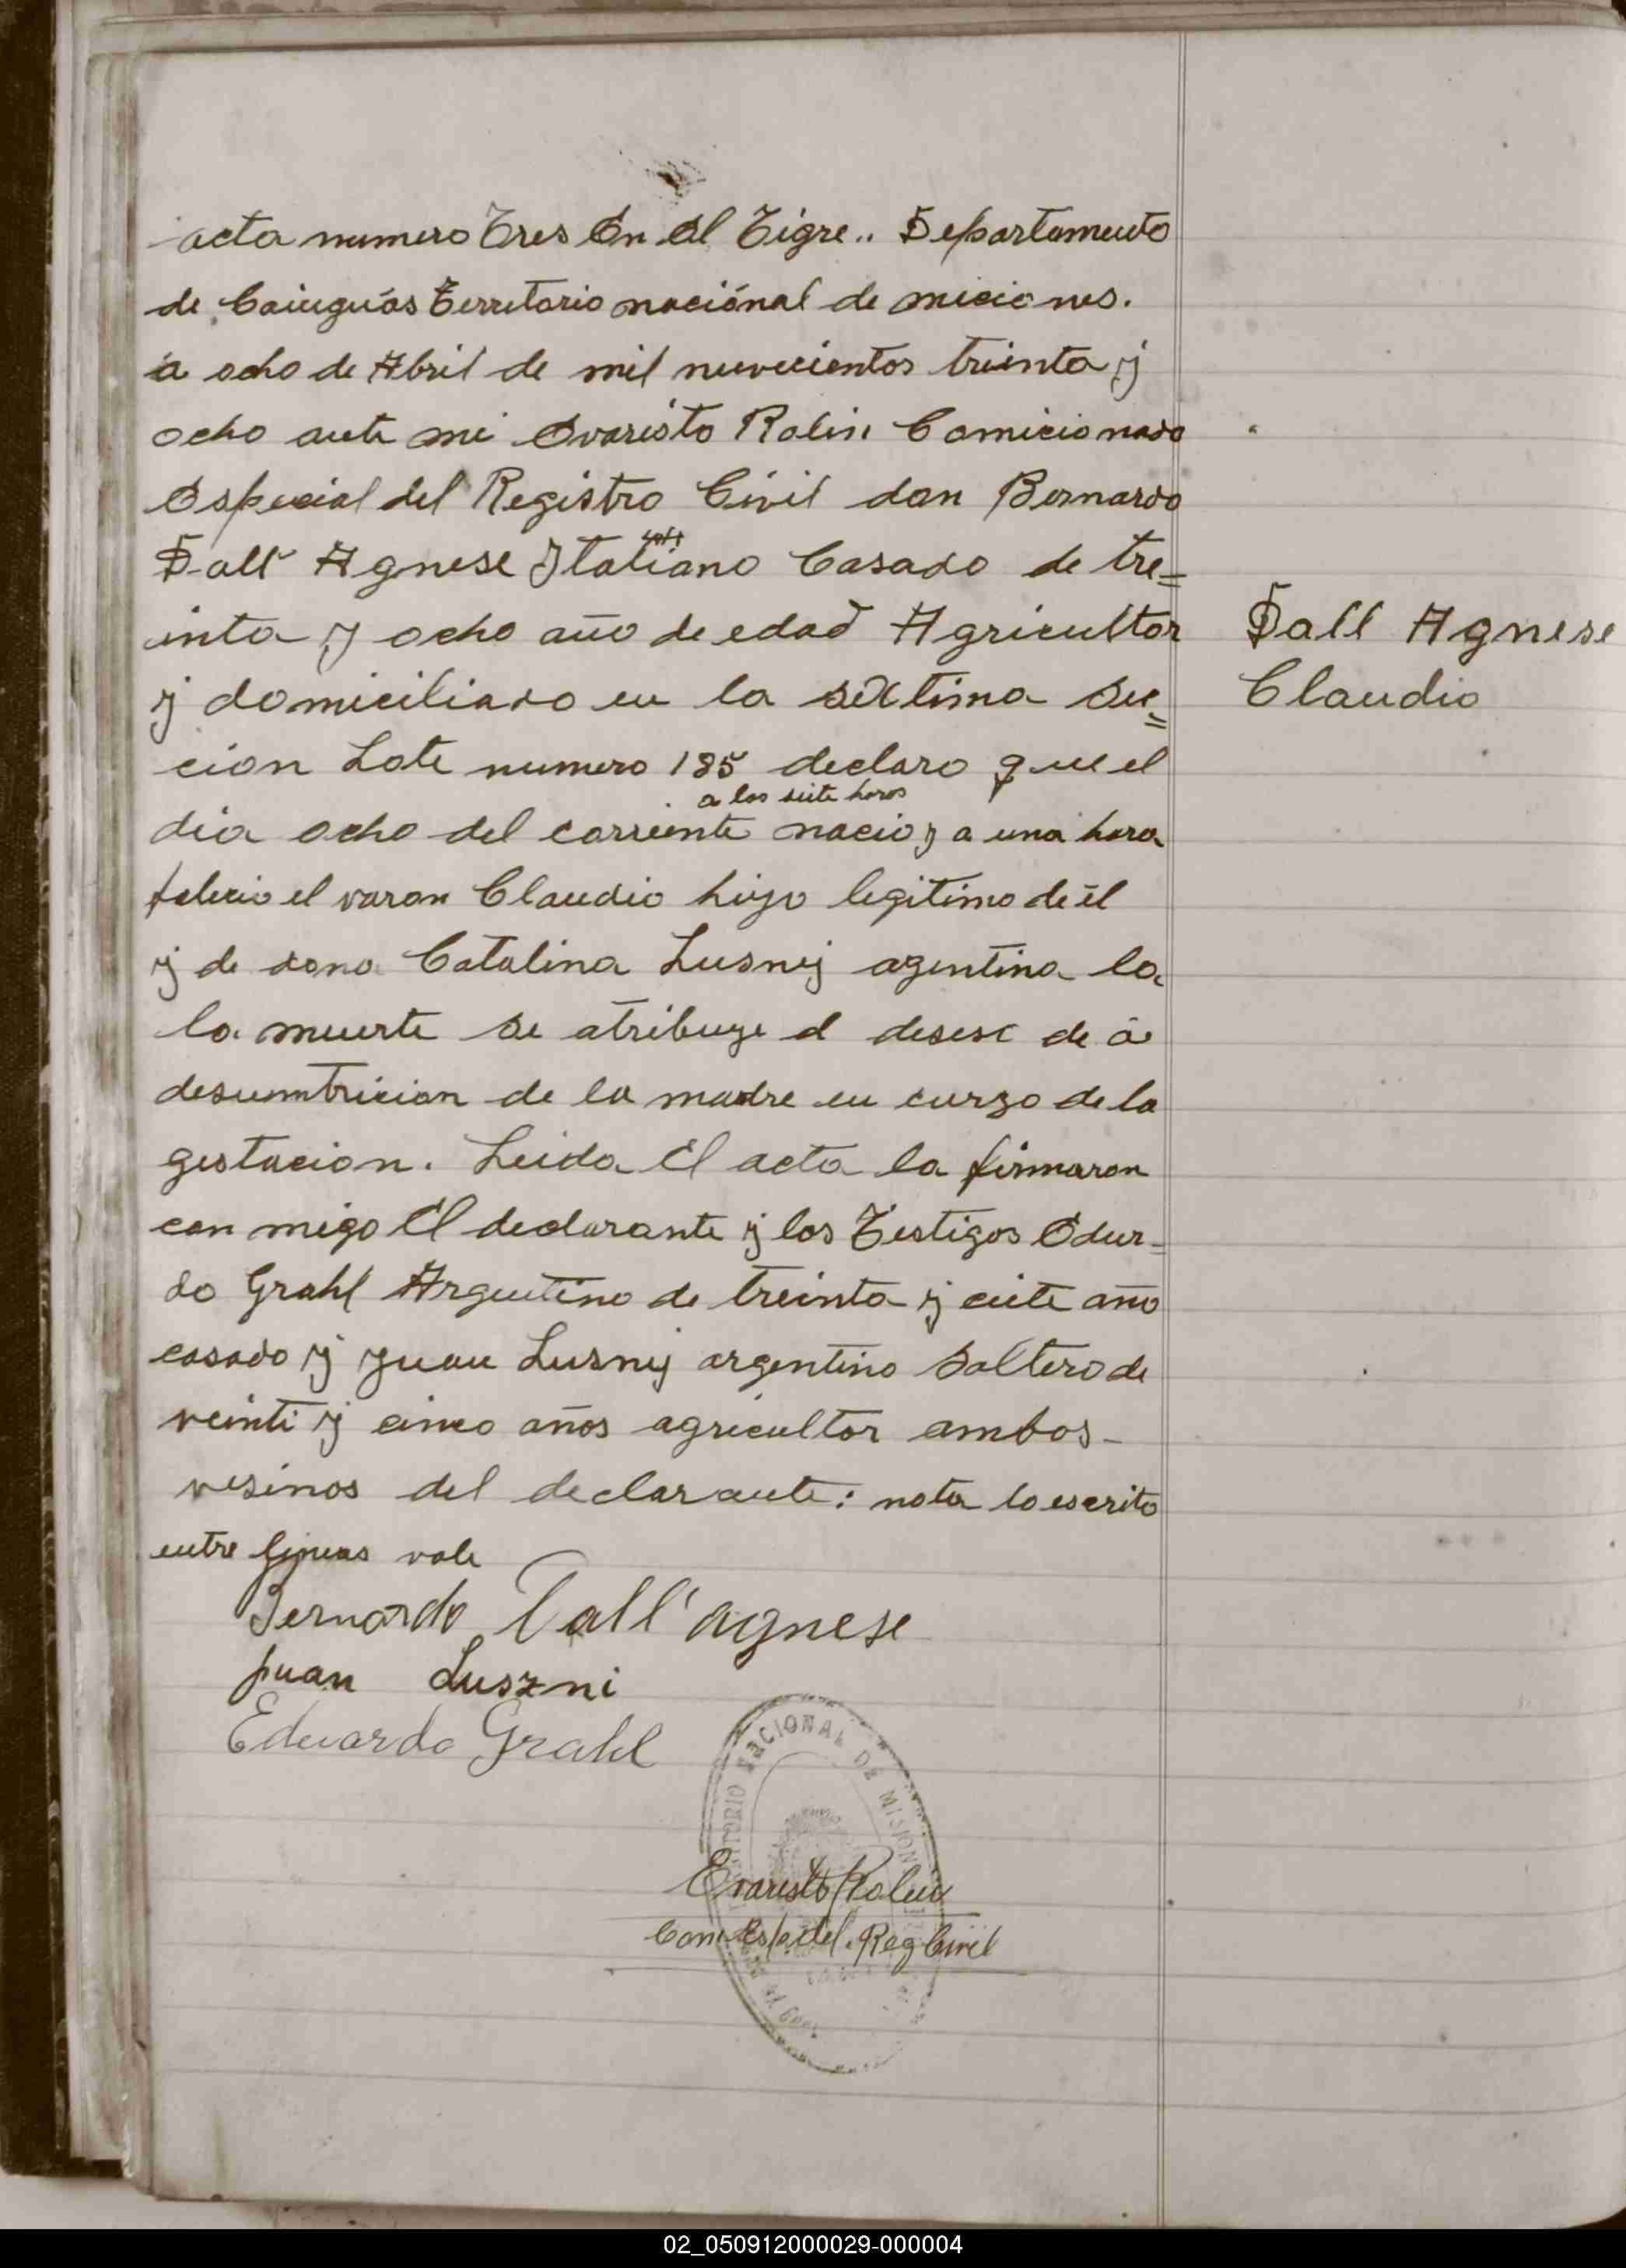 acta numero Tres En El Tigre.. Departamento
de Cainguás Territorio naciónal de miciones.
a ocho de Abril de mil nuvecientos treinta y
ocho ante mi Evaristo Rolin Comicionado
Especial del Registro Civil don Bernardo
Dall Agnese Italiano Casado de tre=
inta y ocho año de edad Agricultor
y domiciliado en la sextima sec=
cion Lote numero 185 declaro que el
a las siete horas
dia ocho del corriente nacio y a una hora
falecio el varon Claudio hijo legitimo de él
y de dona Catalina Lusnij agentina la
la muerte se atribuye el deseso de a
desumtricion de la madre en curzo de la
gestacion. Leida El acta la firmaron
con migo El declarante y los Testigos Edur-
do Grahl Argentino de treinta y ciete año
casado y Juan Lusnij argentino Soltero de
veinti y cinco años agricultor ambos-
vesinos del declarante: nota lo escrito
entre lineas vale
Dall Agnese
Claudio
Bernardo Dall' agnese
Juan Luszni
Eduardo Grahl
TERRITORIO NACIONAL DE MISION
Evaristo Rolin
Com Esp del. Reg Civil
02_050912000029-000004